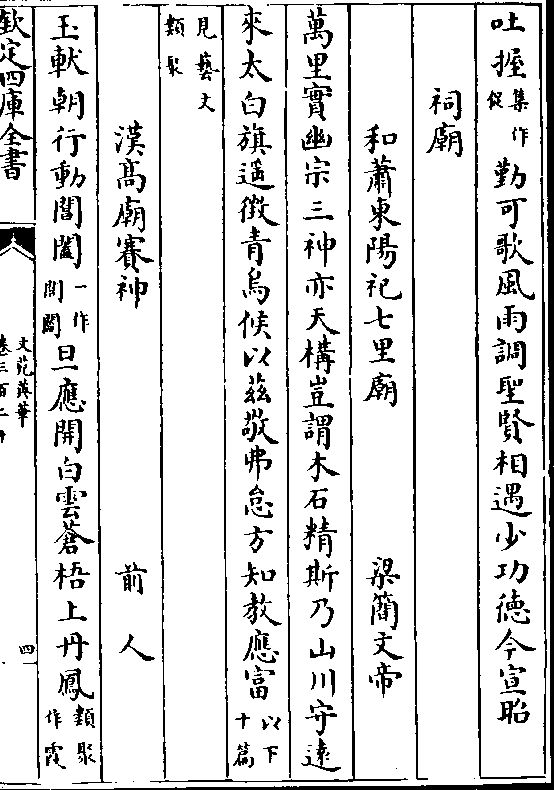 吐握集作促勤可歌風雨調聖賢相遇少功德今宣昭
祠廟
和蕭東陽祀七里廟 梁簡文帝
萬里實幽宗三神亦天構豈謂木石精斯乃山川守遠
來太白旗遥徴青鳥候以兹敬弗怠方知教應富以下十篇
見藝文類聚
漢髙廟賽神 前人
玉軑朝行動誾闔一作閶闔旦應開白雲蒼梧上丹鳳類聚作霞
欽定四庫全書
文苑英華
卷三百二十
四